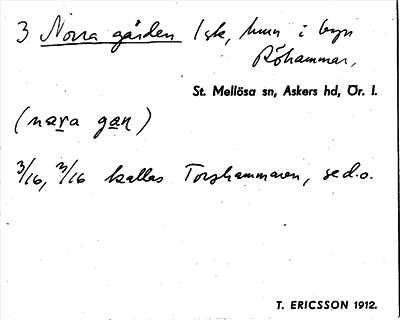 3 Norra gården 1 sk, hmn i byn
Röhammar,
St. Mellösa sn, Askers hd, Ör. l.
(nara gan)
3/16, 3/16 kallas Torphammaren, se d.o.
T. ERICSSON 1912.